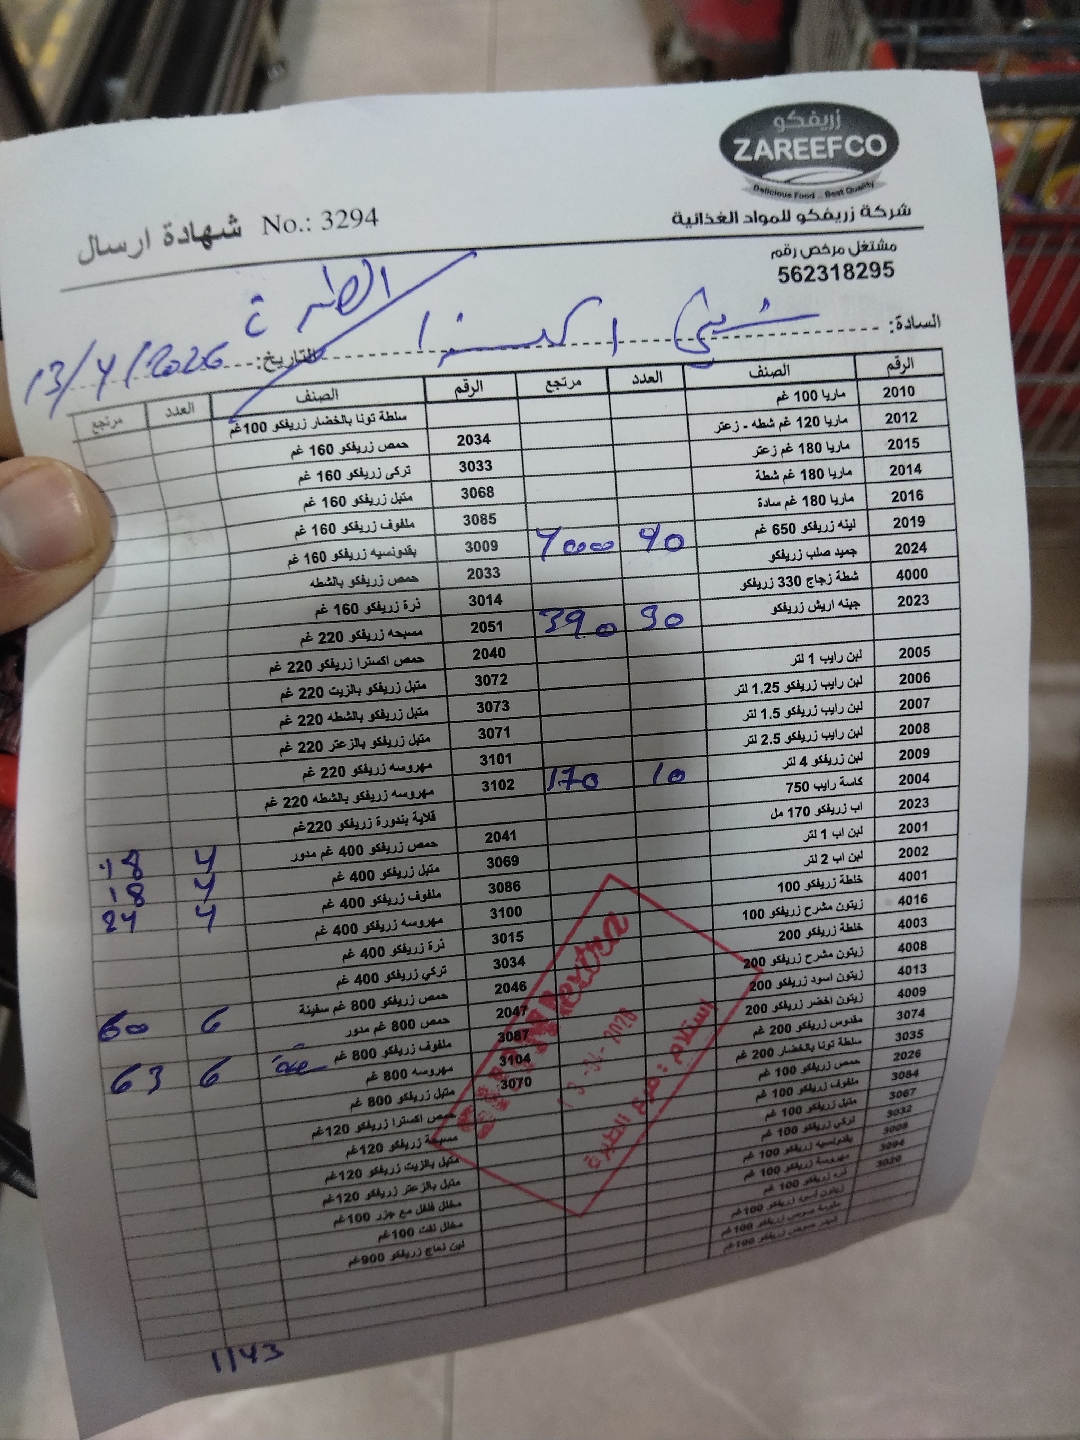 زريفكو
ZAREEFCO
Delicious Food .. Best Quality
شركة زريفكو للمواد الغذائية
شهادة ارسال No.: 3294
مشتغل مرخص رقم
562318295
الطيرة
السادة: شيني اكسترا
التاريخ: 13/4/2026
الرقم الصنف العدد مرتجع
2010 ماريا 100 غم
2012 ماريا 120 غم شطه - زعتر
2015 ماريا 180 غم زعتر
2014 ماريا 180 غم شطة
2016 ماريا 180 غم سادة
2019 لبنه زريفكو 650 غم 40 400
2024 جميد صلب زريفكو
4000 شطة زجاج 330 زريفكو
2023 جبنه اريش زريفكو 30 390
2005 لبن رايب 1 لتر
2006 لبن رايب زريفكو 1.25 لتر
2007 لبن رايب زريفكو 1.5 لتر
2008 لبن رايب زريفكو 2.5 لتر
2009 لبن زريفكو 4 لتر
2004 كاسة رايب 750 10 170
2023 اب زريفكو 170 مل
2001 لبن اب 1 لتر
2002 لبن اب 2 لتر
4001 خلطة زريفكو 100
4016 زيتون مشرح زريفكو 100
4003 خلطة زريفكو 200
4008 زيتون مشرح زريفكو 200
4013 زيتون اسود زريفكو 200
4009 زيتون اخضر زريفكو 200
3074 مقدوس زريفكو 200 غم
3035 سلطة تونا بالخضار 200 غم
2026 حمص زريفكو 100 غم
3084 ملفوف زريفكو 100 غم
3067 متبل زريفكو 100 غم
3032 تركي زريفكو 100 غم
3008 بقدونسيه زريفكو 100 غم
3094 مهروسة زريفكو 100 غم
3020 ذره زريفكو 100 غم
زيتون اسود زريفكو 100غم
زريفكو 100غم
زريفكو 100غم
الرقم الصنف العدد مرتجع
سلطة تونا بالخضار زريفكو 100غم
2034 حمص زريفكو 160 غم
3033 تركي زريفكو 160 غم
3068 متبل زريفكو 160 غم
3085 ملفوف زريفكو 160 غم
3009 بقدونسيه زريفكو 160 غم
2033 حمص زريفكو بالشطه
3014 ذرة زريفكو 160 غم
2051 مسبحه زريفكو 220 غم
2040 حمص اكسترا زريفكو 220 غم
3072 متبل زريفكو بالزيت 220 غم
3073 متبل زريفكو بالشطه 220 غم
3071 متبل زريفكو بالزعتر 220 غم
3101 مهروسه زريفكو 220 غم
3102 مهروسه زريفكو بالشطه 220 غم
قلاية بندورة زريفكو 220غم
2041 حمص زريفكو 400 غم مدور 4 18
3069 متبل زريفكو 400 غم 4 18
3086 ملفوف زريفكو 400 غم 4 24
3100 مهروسه زريفكو 400 غم
3015 ذرة زريفكو 400 غم
3034 تركي زريفكو 400 غم
2046 حمص زريفكو 800 غم سفينة
2047 حمص 800 غم مدور 6 60
3087 ملفوف زريفكو 800 غم
3104 مهروسه 800 غم 6 63
3070 متبل زريفكو 800 غم
حمص اكسترا زريفكو 120غم
مسبحة زريفكو 120غم
متبل بالزيت زريفكو 120غم
متبل بالزعتر زريفكو 120غم
مخلل فلفل مع جزر 100غم
مخلل لفت 100غم
لبن نعاج زريفكو 900غم
extra
استلام : فرع الطيرة
1143